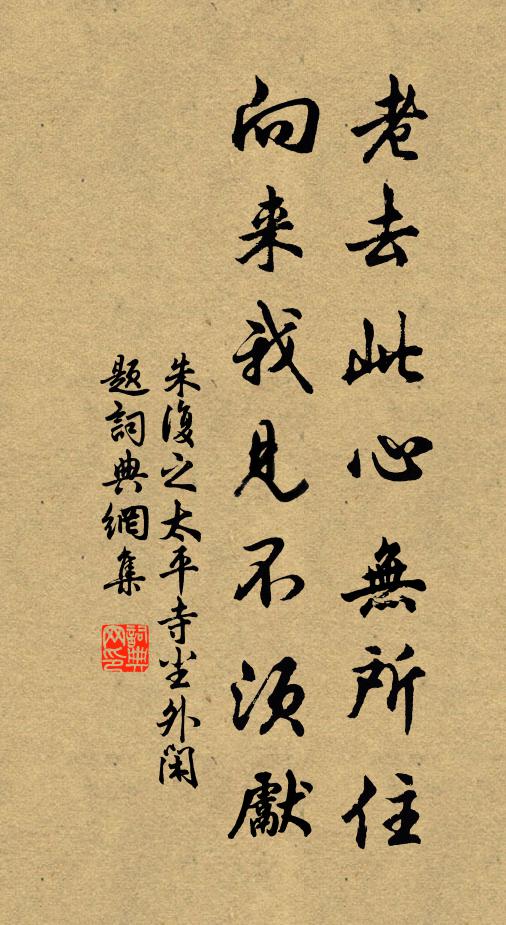 老去此心無所住
向来我見不須獻
朱復之太平寺尘外閑
題詞典網集
詞典网印